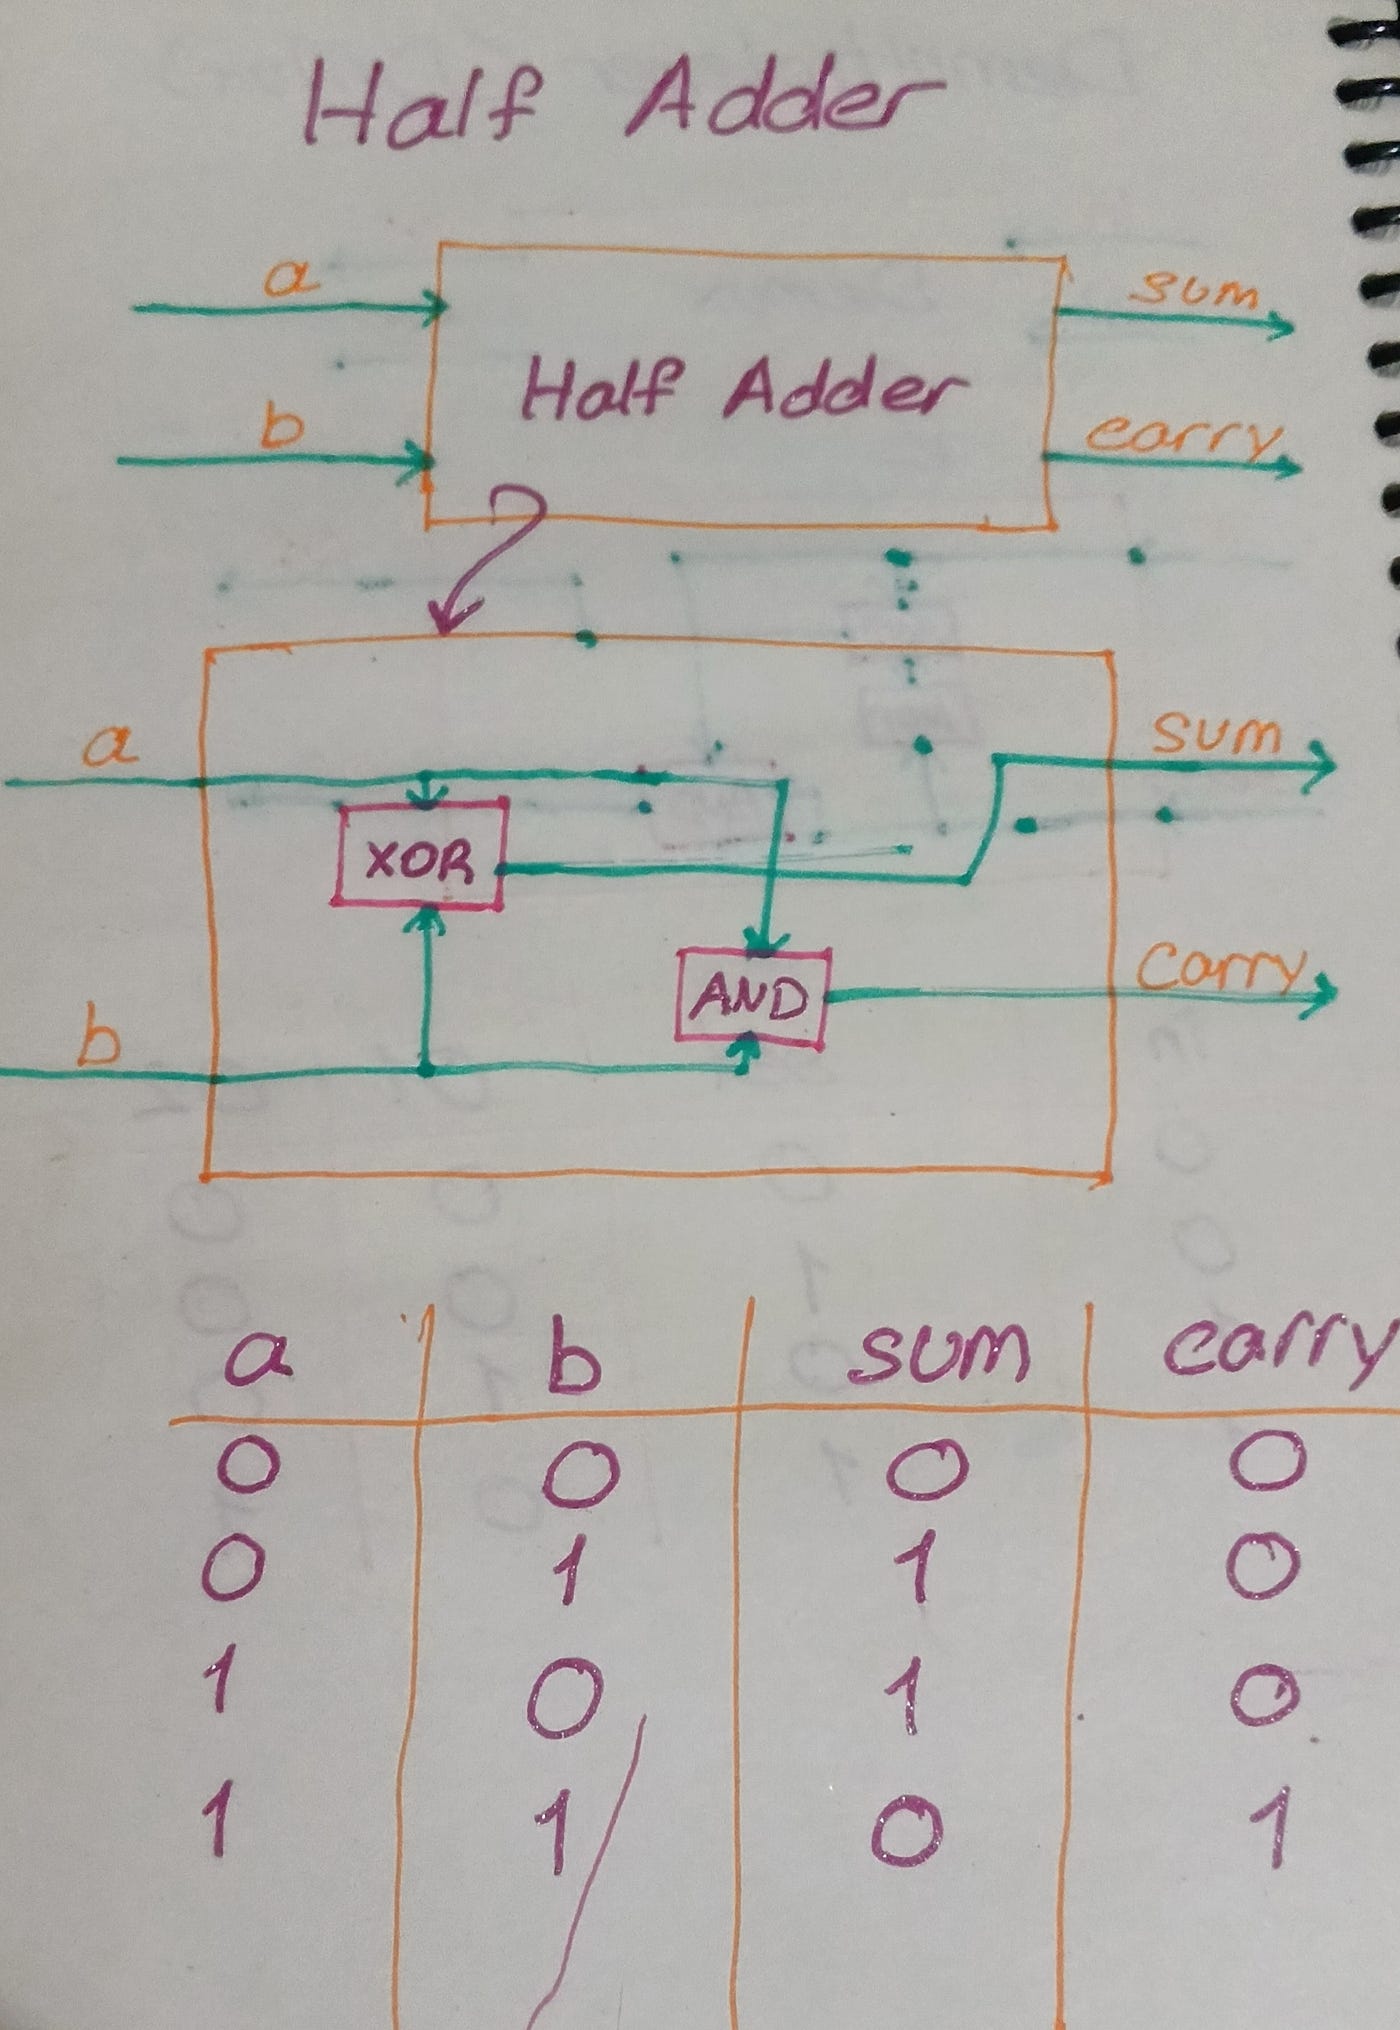 Half Adder
a sum
Half Adder
b carry
a sum
XOR
AND carry
b
a b sum carry
0 0 0 0
0 1 1 0
1 0 1 0
1 1 0 1